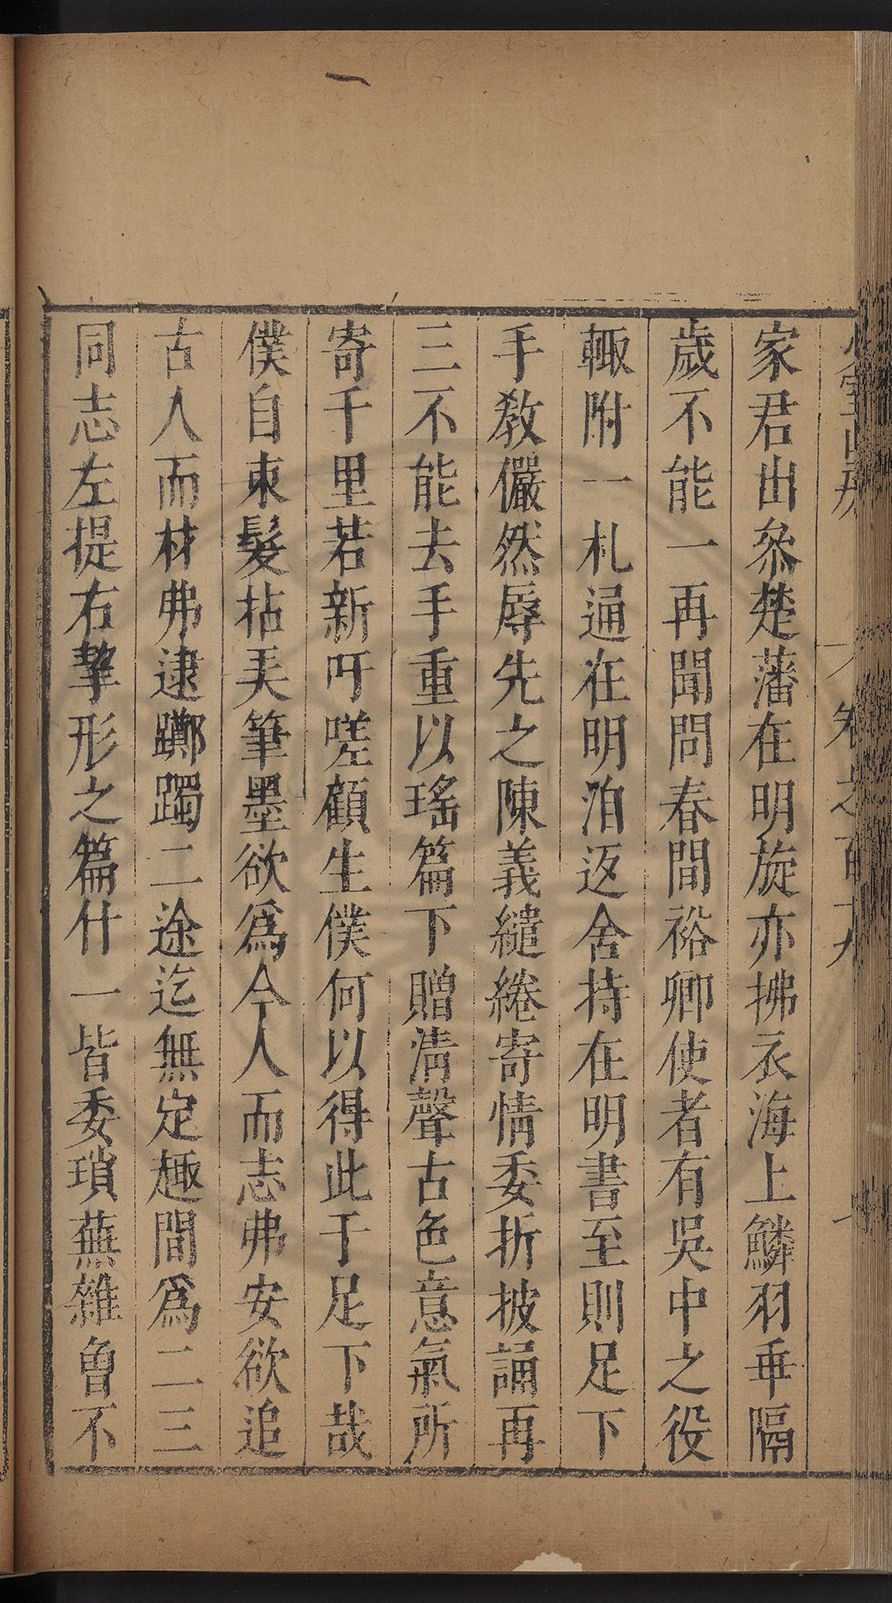 卷之百十九
家君出叅楚藩在明旋亦拂衣海上鱗羽乖隔
歲不能一再聞問春間裕卿使者有吳中之役
輙附一札逼在明泊返舍持在明書至則足下
手敎儼然辱先之陳義繾綣寄情委折披誦再
三不能去手重以瑤篇下贈淸聲古色意氣所
寄千里若新吁嗟顧生僕何以得此于足下哉
僕自束髮拈弄筆墨欲爲今人而志弗安欲追
古人而材弗逮躑躅二途迄無定趣間爲二三
同志左提右挈形之篇什一皆委瑣蕪雜會不